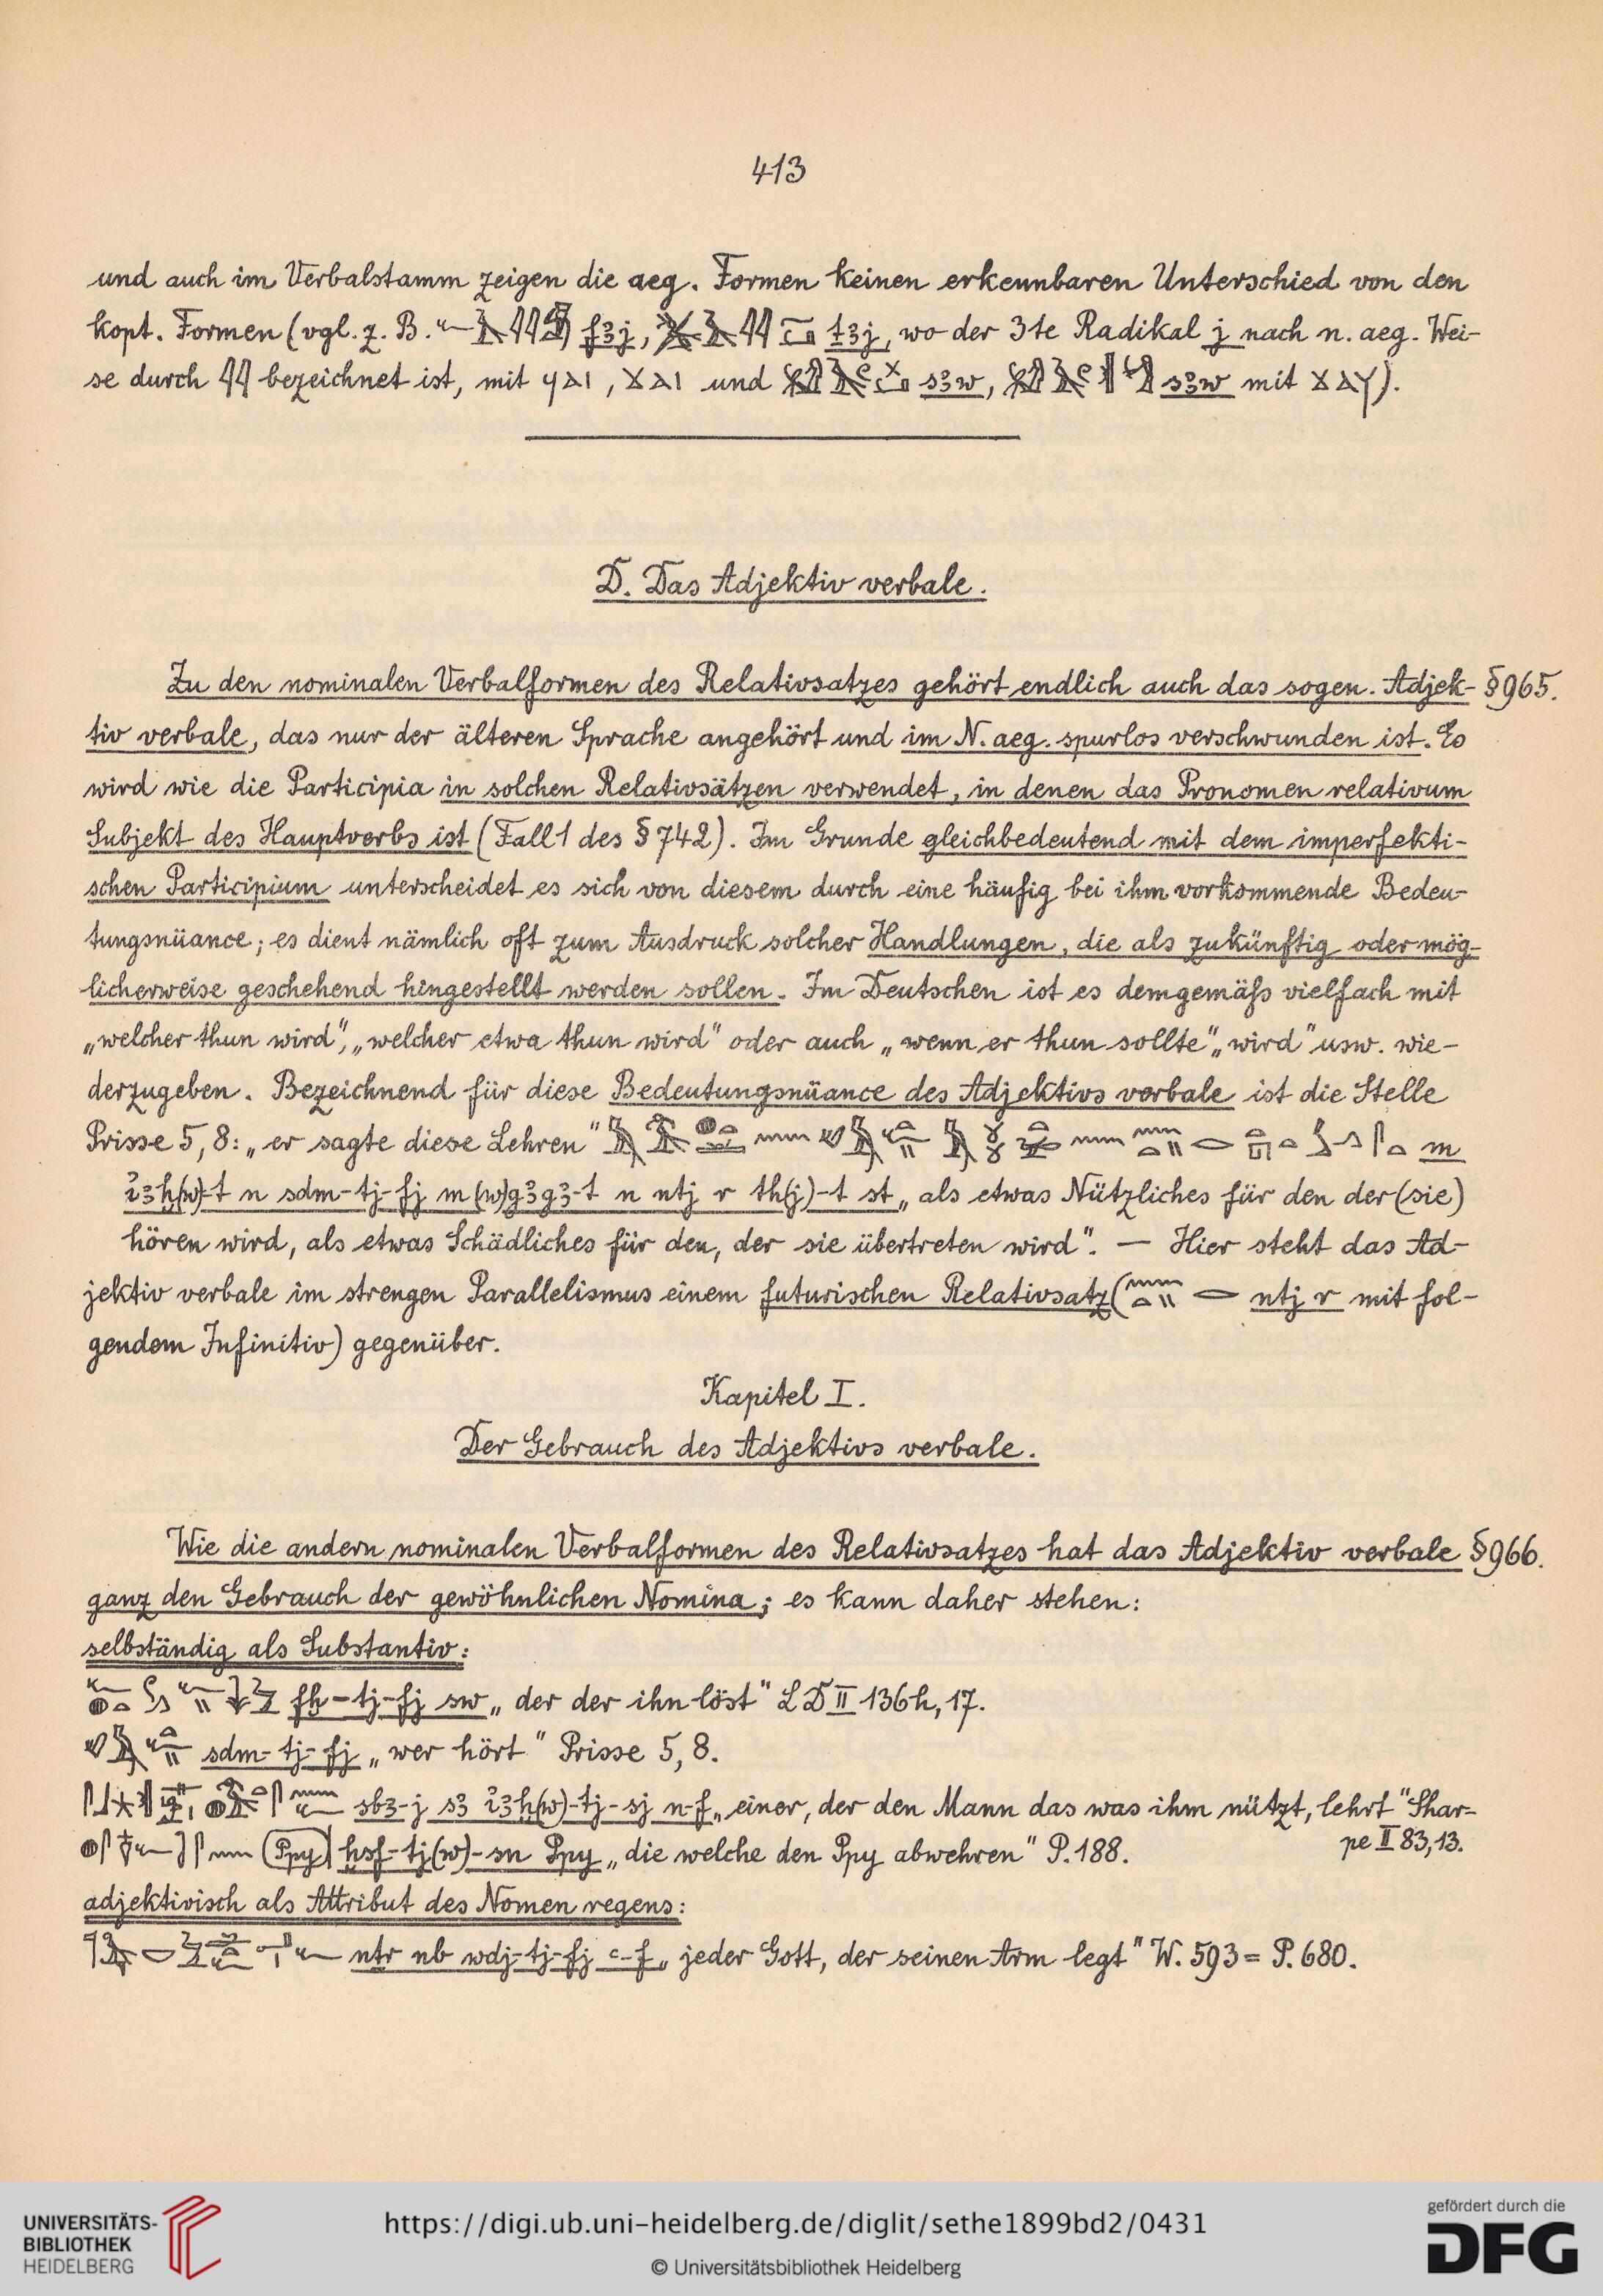 413
und auch im Verbalstamm zeigen die aeg. Formen keinen erkennbaren Unterschied von den
kopt. Formen (vgl. z. B. f3j, t3j, wo der 3te Radikal j nach n. aeg. Wei-
se durch 𓇋𓇋 bezeichnet ist, mit ϥⲁⲓ, ϫⲁⲓ und s3w, s3w mit ).
D. Das Adjektiv verbale.
Zu den nominalen Verbalformen des Relativsatzes gehört endlich auch das sogen. Adjek- § 965.
tiv verbale, das nur der älteren Sprache angehört und im N. aeg. spurlos verschwunden ist. Es
wird wie die Participia in solchen Relativsätzen verwendet, in denen das Pronomen relativum
Subjekt des Hauptverbs ist (Fall 1 des § 742). Im Grunde gleichbedeutend mit dem imperfekti-
schen Participium unterscheidet es sich von diesem durch eine häufig bei ihm vorkommende Bedeu-
tungsnüance; es dient nämlich oft zum Ausdruck solcher Handlungen, die als zukünftig oder mög-
licherweise geschehend hingestellt werden sollen. Im Deutschen ist es demgemäß vielfach mit
„welcher thun wird“, „welcher etwa thun wird“ oder auch „wenn er thun sollte“ „wird“ usw. wie-
derzugeben. Bezeichnend für diese Bedeutungsnüance des Adjektivs verbale ist die Stelle
Prisse 5, 8: „er sagte diese Lehren“ m
i3ḫ(w)-t n sdm-tj-fj m (w)g3g3-t n ntj r th(j)-t st „als etwas Nützliches für den der (sie)
hören wird, als etwas Schädliches für den, der sie übertreten wird“. — Hier steht das Ad-
jektiv verbale im strengen Parallelismus einem futurischen Relativsatz ( ntj r mit fol-
gendem Infinitiv) gegenüber.
Kapitel I.
Der Gebrauch des Adjektivs verbale.
Wie die andern nominalen Verbalformen des Relativsatzes hat das Adjektiv verbale § 966.
ganz den Gebrauch der gewöhnlichen Nomina; es kann daher stehen:
selbständig als Substantiv:
fḫ-tj-fj sw „der der ihn löst“ LD II 136h, 17.
sdm-tj-fj „wer hört“ Prisse 5, 8.
sb3-j s3 i3ḫ(w)-tj-sj n-f „einer, der den Mann das was ihm nützt, lehrt“ Shar-
pe II 83, 13.
(Ppy) ḫsf-tj(w)-sn Ppy „die welche den Ppy abwehren“ P. 188.
adjektivisch als Attribut des Nomen regens:
ntr nb wdj-tj-fj c-f „jeder Gott, der seinen Arm legt“ W. 593 = P. 680.
UNIVERSITÄTS-
BIBLIOTHEK
HEIDELBERG
https://digi.ub.uni-heidelberg.de/diglit/sethe1899bd2/0431
© Universitätsbibliothek Heidelberg
gefördert durch die
DFG